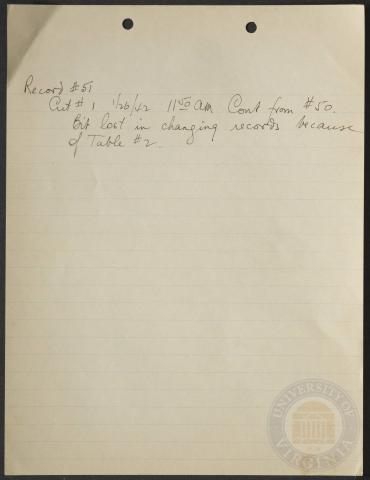 Record #51
Cut #1 1/26/42 11:50 am Cont from #50.
Bit lost in changing records because
of Table #2.
UNIVERSITY OF VIRGINIA